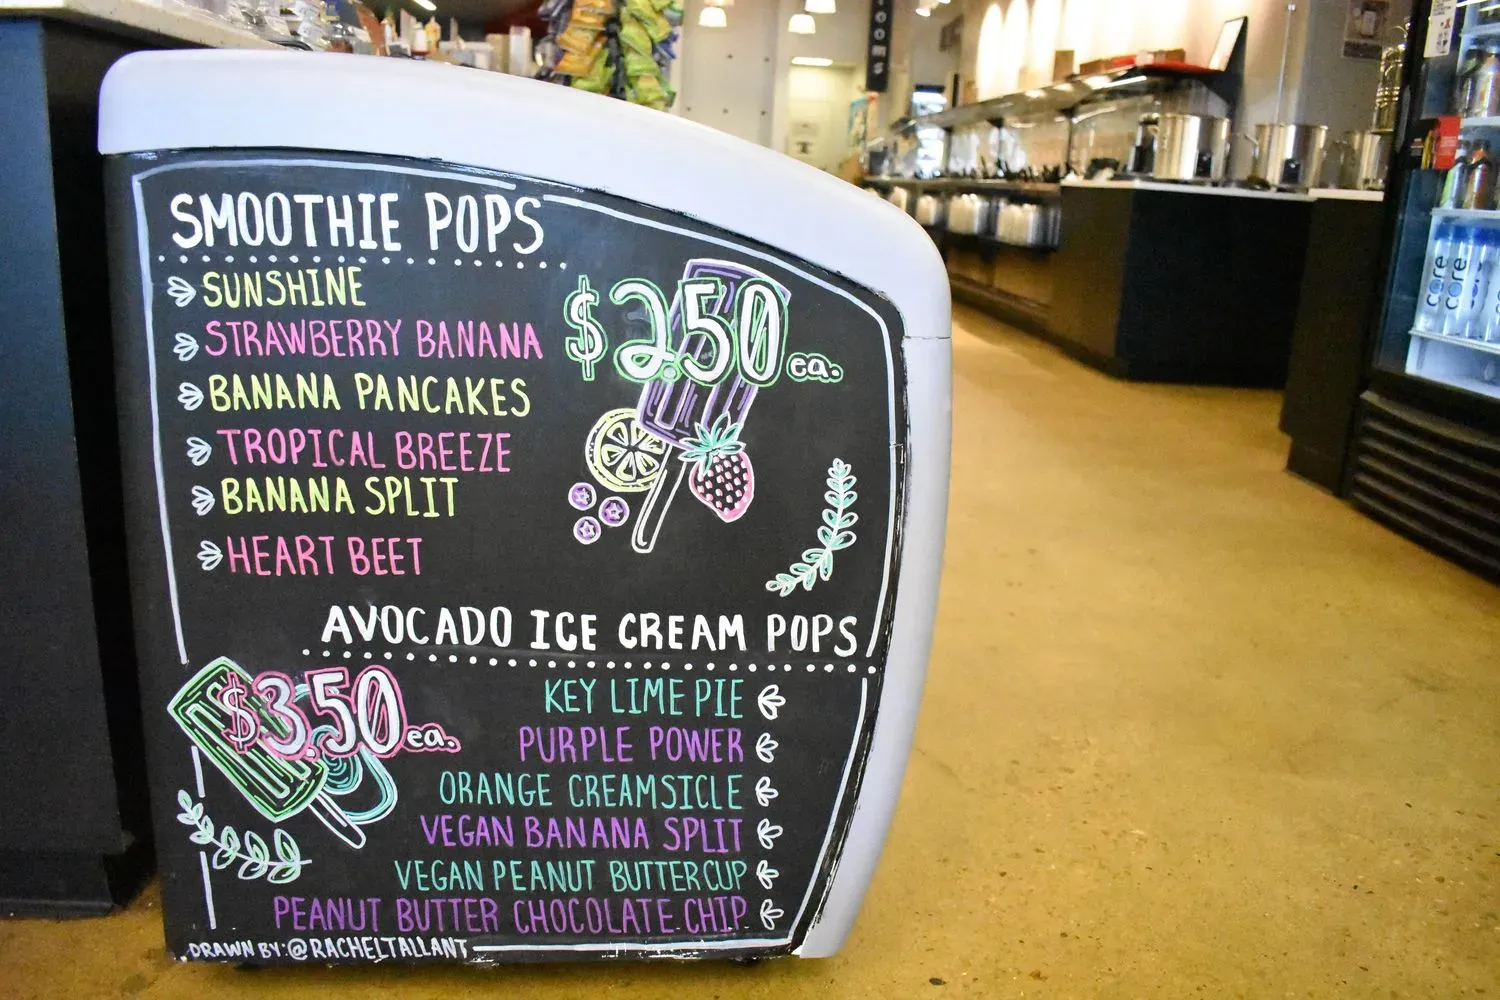 SMOOTHIE POPS
SUNSHINE
STRAWBERRY BANANA
BANANA PANCAKES
TROPICAL BREEZE
BANANA SPLIT
HEART BEET
$2.50 ea.
AVOCADO ICE CREAM POPS
$3.50 ea.
KEY LIME PIE
PURPLE POWER
ORANGE CREAMSICLE
VEGAN BANANA SPLIT
VEGAN PEANUT BUTTER CUP
PEANUT BUTTER CHOCOLATE CHIP
DRAWN BY: @RACHELTALLANT
OOMS
core
core